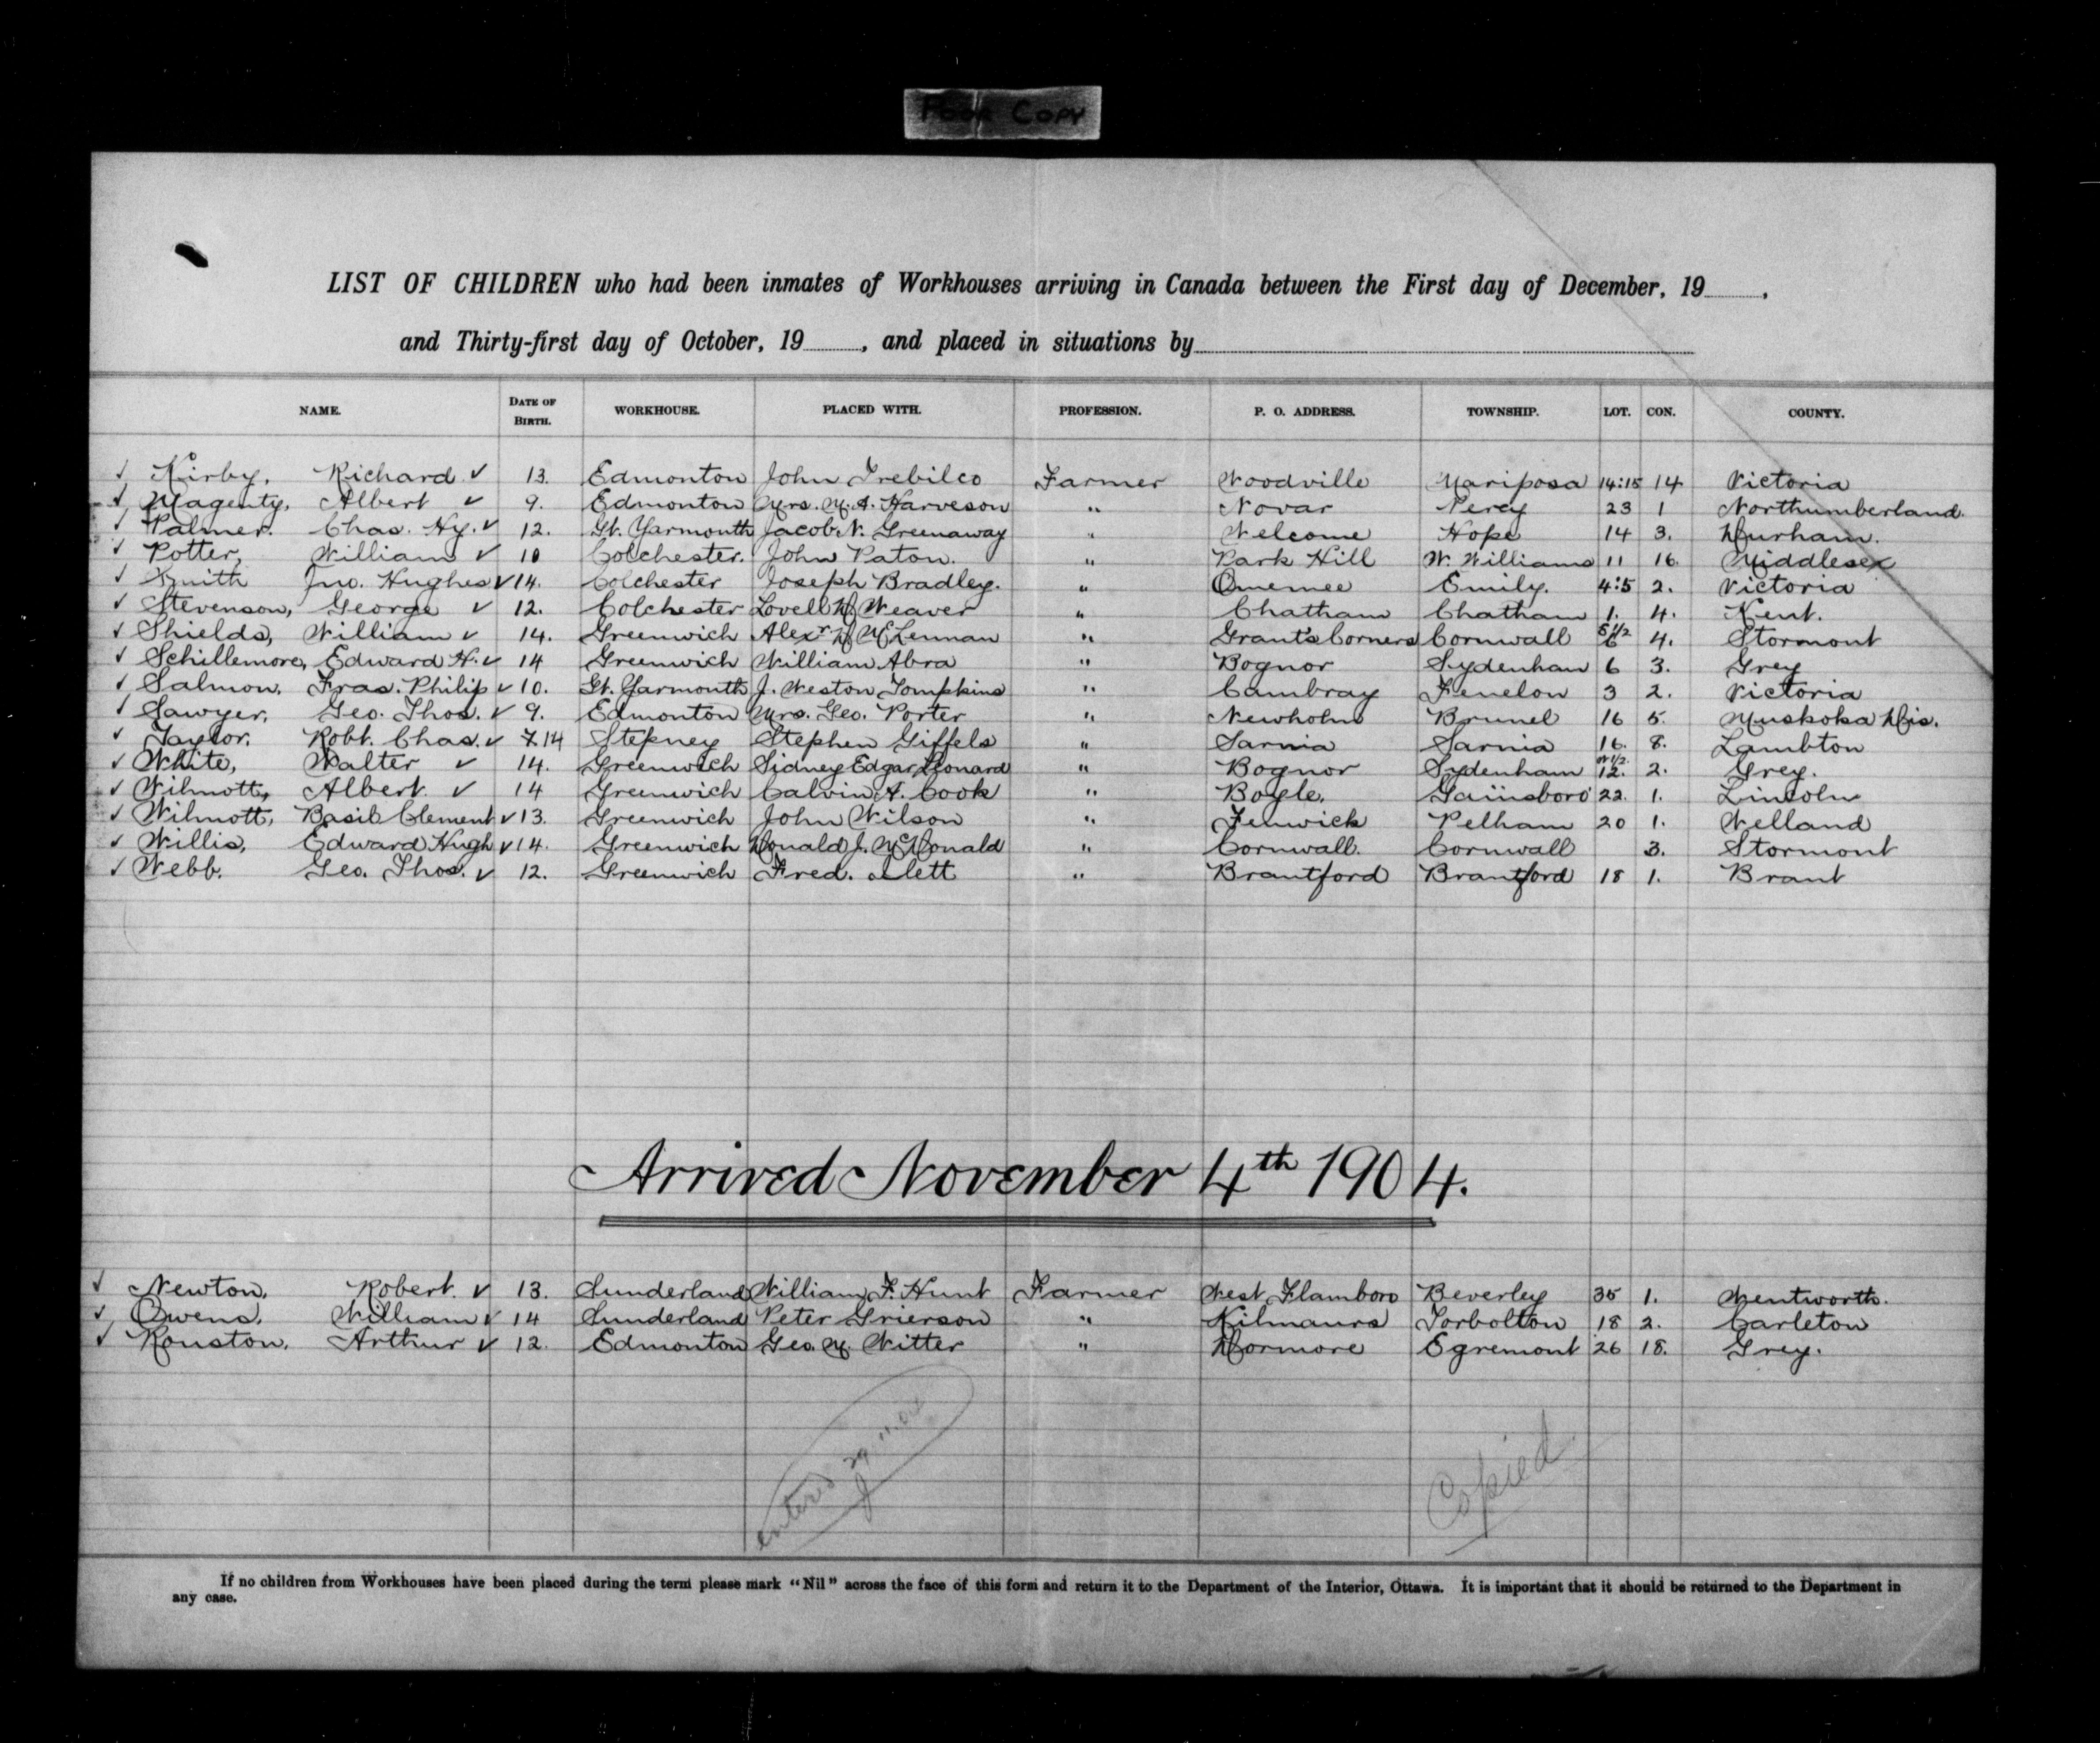 Poor Copy
LIST OF CHILDREN who had been inmates of Workhouses arriving in Canada between the First day of December, 19......,
and Thirty-first day of October, 19......, and placed in situations by
NAME. DATE OF BIRTH. WORKHOUSE. PLACED WITH. PROFESSION. P. O. ADDRESS. TOWNSHIP. LOT. CON. COUNTY.
✓ Kirby, Richard ✓ 13. Edmonton John Trebilco Farmer Woodville Mariposa 14:15 14 Victoria
✓ Magenty, Albert ✓ 9. Edmonton Mrs. M. A. Harveson " Novar Percy 23 1 Northumberland.
✓ Palmer. Chas. Hy. ✓ 12. Gt. Yarmouth Jacob N. Greenaway " Welcome Hope 14 3. Durham.
✓ Potter, William ✓ 10 Colchester. John Paton. " Park Hill W. Williams 11 16. Middlesex
✓ Smith Jno. Hughes ✓ 14. Colchester Joseph Bradley. " Omemee Emily. 4:5 2. Victoria
✓ Stevenson, George ✓ 12. Colchester Lovell W Weaver " Chatham Chatham 1. 4. Kent.
✓ Shields, William ✓ 14. Greenwich Alexr McLennan " Grant's Corners Cornwall 6 4. Stormont
✓ Schillemore, Edward H. ✓ 14 Greenwich William Abra " Bognor Sydenham 6 3. Grey
✓ Salmon, Fras. Philip ✓ 10. Gt. Yarmouth J. Weston Tompkins " Cambray Fenelon 3 2. Victoria
✓ Sawyer, Geo. Thos. ✓ 9. Edmonton Mrs. Geo. Porter " Newholm Brunel 16 5. Muskoka Dis.
✓ Taylor. Robt. Chas. ✓ 14 Stepney Stephen Giffels " Sarnia Sarnia 16. 8. Lambton
✓ White, Walter ✓ 14. Greenwich Sidney Edgar Leonard " Bognor Sydenham 12. 2. Grey.
✓ Wilmott, Albert. ✓ 14 Greenwich Calvin A. Cook " Boyle. Gainsboro' 22. 1. Lincoln
✓ Wilmott, Basil Clement ✓ 13. Greenwich John Wilson " Fenwick Pelham 20 1. Welland
✓ Willis, Edward Hugh ✓ 14. Greenwich Donald J. McDonald " Cornwall. Cornwall 3. Stormont
✓ Webb. Geo. Thos. ✓ 12. Greenwich Fred. Slett " Brantford Brantford 18 1. Brant
Arrived November 4th 1904.
✓ Newton, Robert. ✓ 13. Sunderland William F. Hunt Farmer West Flamboro Beverley 35 1. Wentworth.
✓ Owens, William ✓ 14 Sunderland Peter Grierson " Kilmaurs Torbolton 18 2. Carleton
✓ Rouston, Arthur ✓ 12. Edmonton Geo. M. Witter " Dormore Egremont 26 18. Grey.
entered
Copied
If no children from Workhouses have been placed during the term please mark "Nil" across the face of this form and return it to the Department of the Interior, Ottawa. It is important that it should be returned to the Department in
any case.